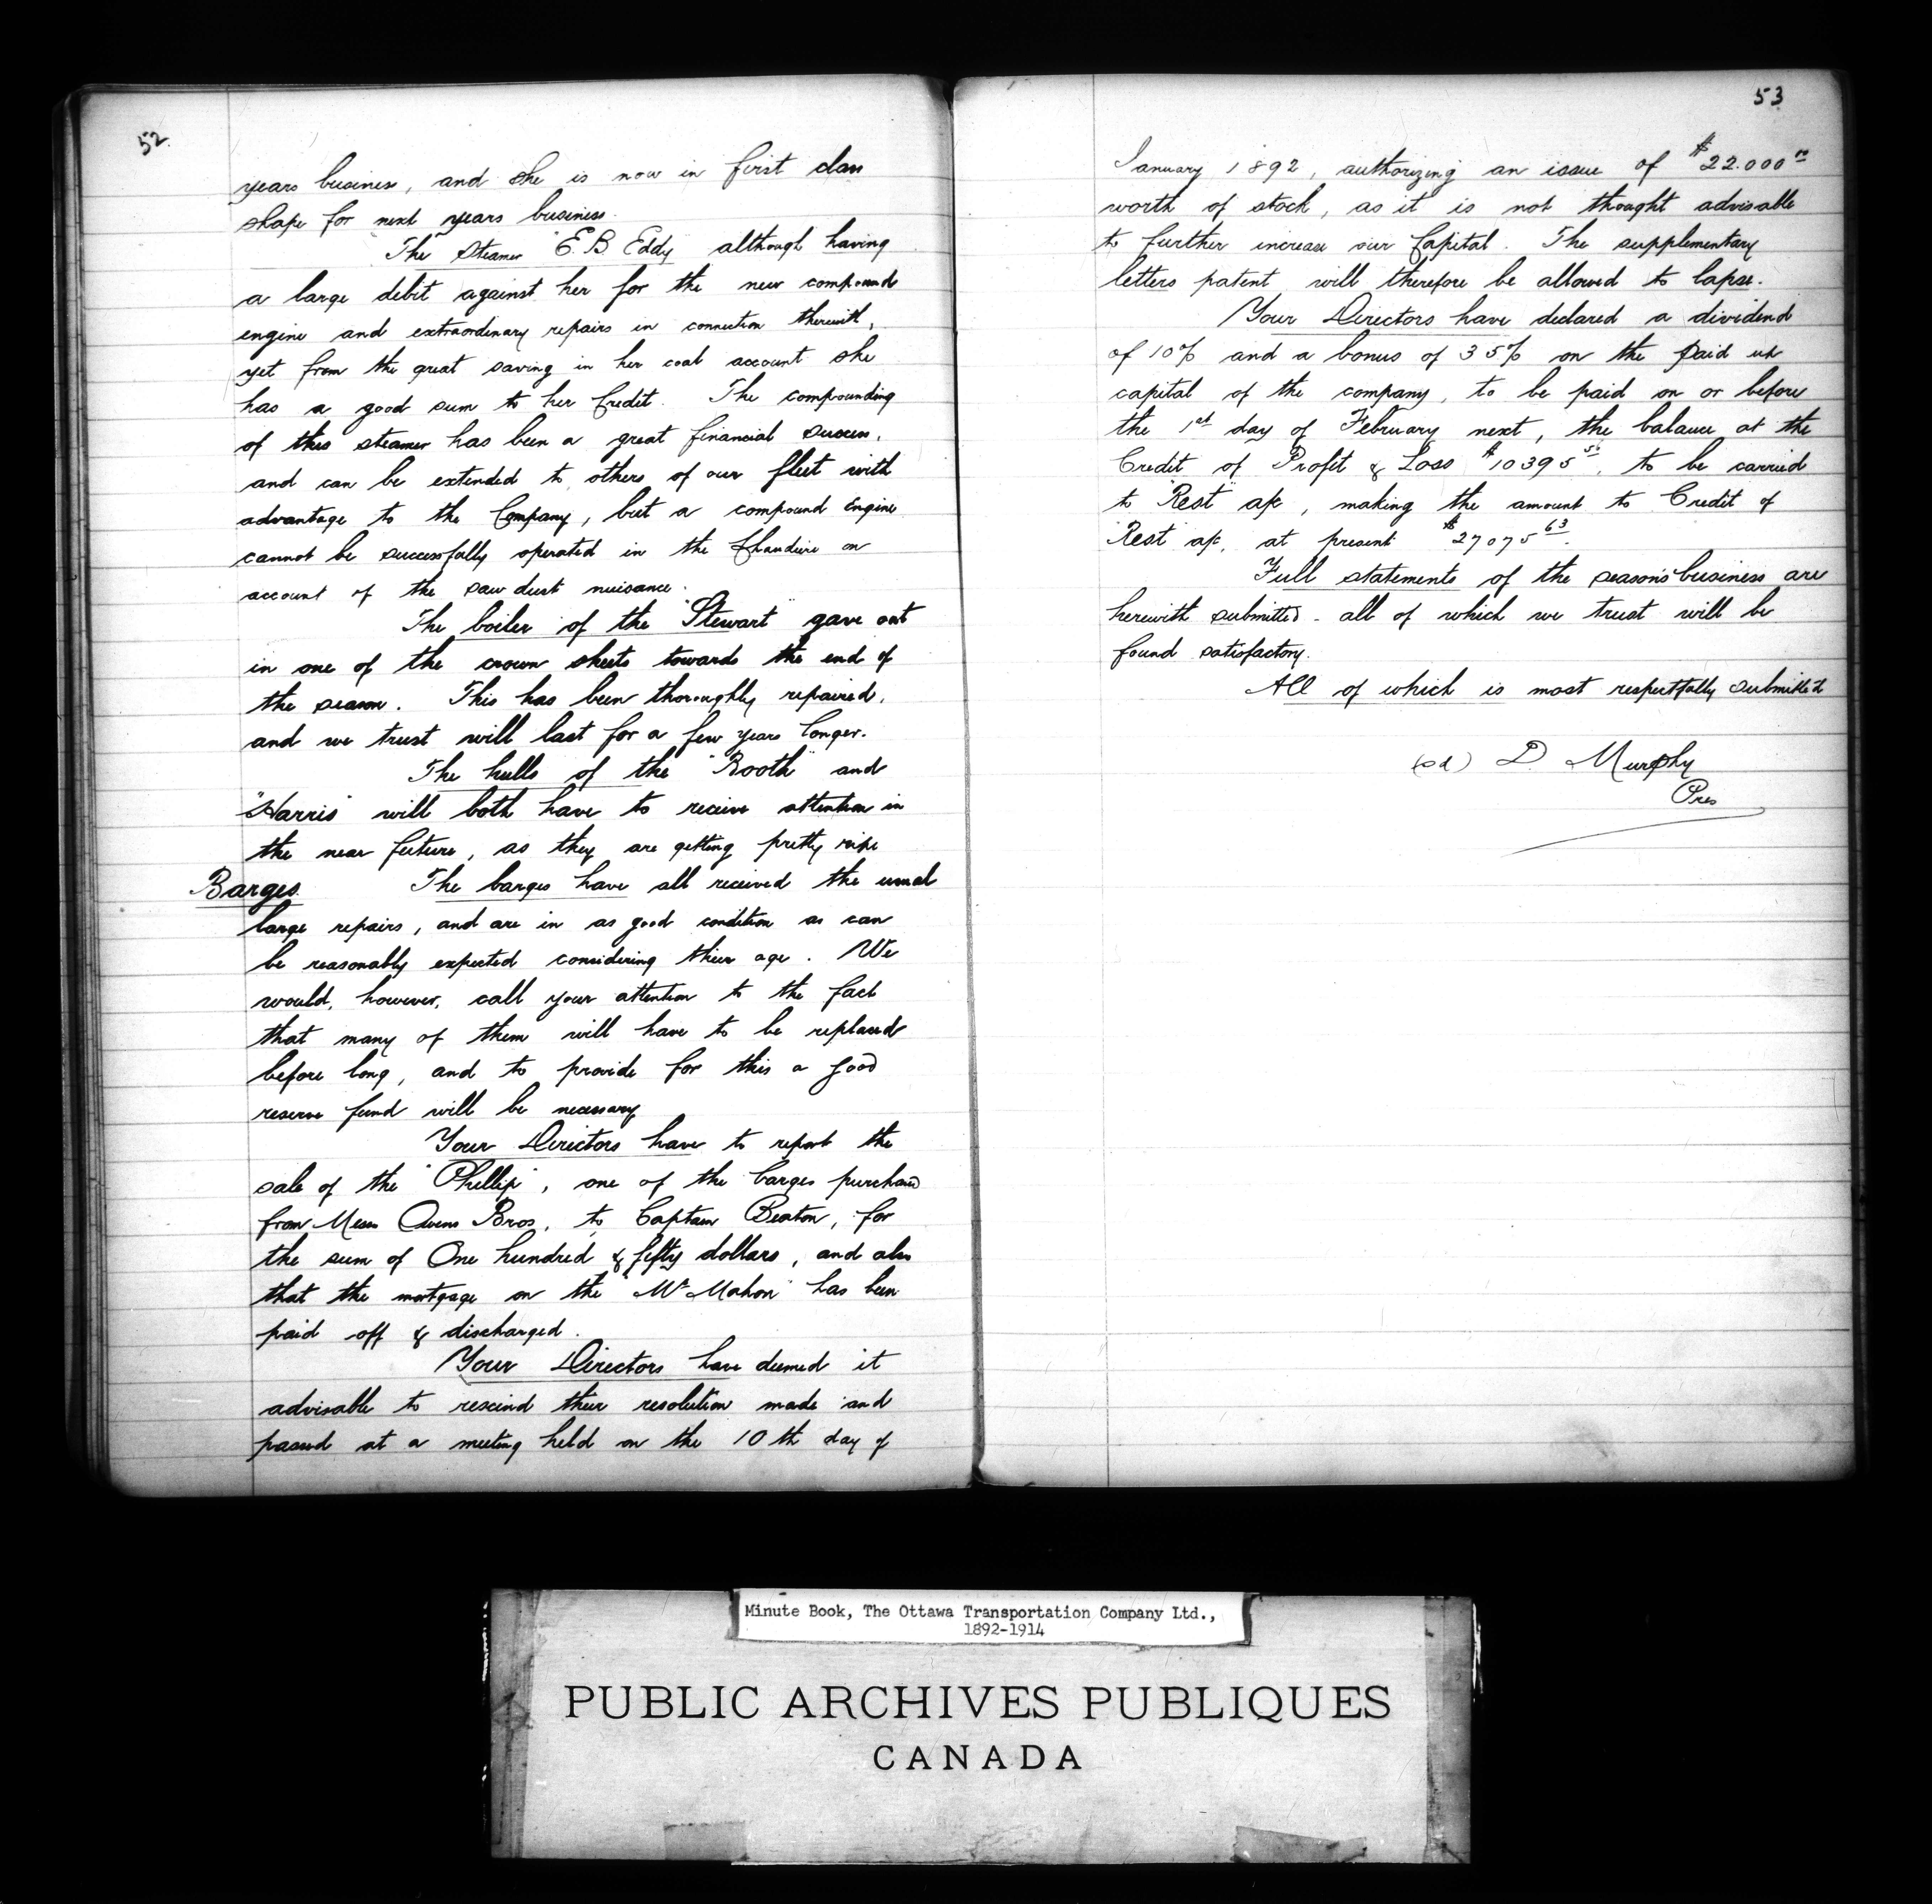 52.
years business, and she is now in first class
shape for next years business.
The Steamer "E. B. Eddy" although having
a large debit against her for the new compound
engine and extraordinary repairs in connection therewith,
yet from the great saving in her coal account she
has a good sum to her Credit. The compounding
of this steamer has been a great financial success,
and can be extended to others of our fleet with
advantage to the Company, but a compound Engine
cannot be successfully operated in the Chaudiere on
account of the saw dust nuisance.
The boiler of the "Stewart" gave out
in one of the crown sheets towards the end of
the season. This has been thoroughly repaired,
and we trust will last for a few years longer.
The hulls of the "Booth" and
"Harris" will both have to receive attention in
the near future, as they are getting pretty ripe
Barges. The barges have all received the usual
large repairs, and are in as good condition as can
be reasonably expected considering their age. We
would, however, call your attention to the fact
that many of them will have to be replaced
before long, and to provide for this a good
reserve fund will be necessary
Your Directors have to report the
sale of the "Phillip", one of the barges purchased
from Messrs Owens Bros, to Captain Beaton, for
the sum of One hundred & fifty dollars, and also
that the mortgage on the "McMahon" has been
paid off & discharged.
Your Directors have deemed it
advisable to rescind their resolution made and
passed at a meeting held on the 10th day of
53
January 1892, authorizing an issue of $22.000 00
worth of stock, as it is not thought advisable
to further increase our Capital. The supplementary
letters patent will therefore be allowed to lapse.
Your Directors have declared a dividend
of 10% and a bonus of 35% on the paid up
capital of the company, to be paid on or before
the 1st day of February next, the balance at the
Credit of Profit & Loss $10395 50, to be carried
to "Rest" a/c, making the amount to Credit of
"Rest" a/c, at present $27075 63.
Full statements of the season's business are
herewith submitted - all of which we trust will be
found satisfactory.
All of which is most respectfully submitted
(sd) D. Murphy
Pres
Minute Book, The Ottawa Transportation Company Ltd.,
1892-1914
PUBLIC ARCHIVES PUBLIQUES
CANADA